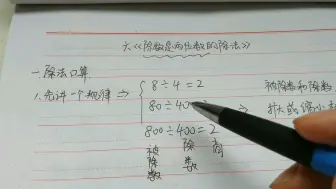 六《除数是两位数的除法》
一.除法口算
1.先讲一个规律 ⇒ { 8÷4=2
80÷40
800÷400=2
被除数 除数 商
被除数和除数
⇒ 扩大或缩小